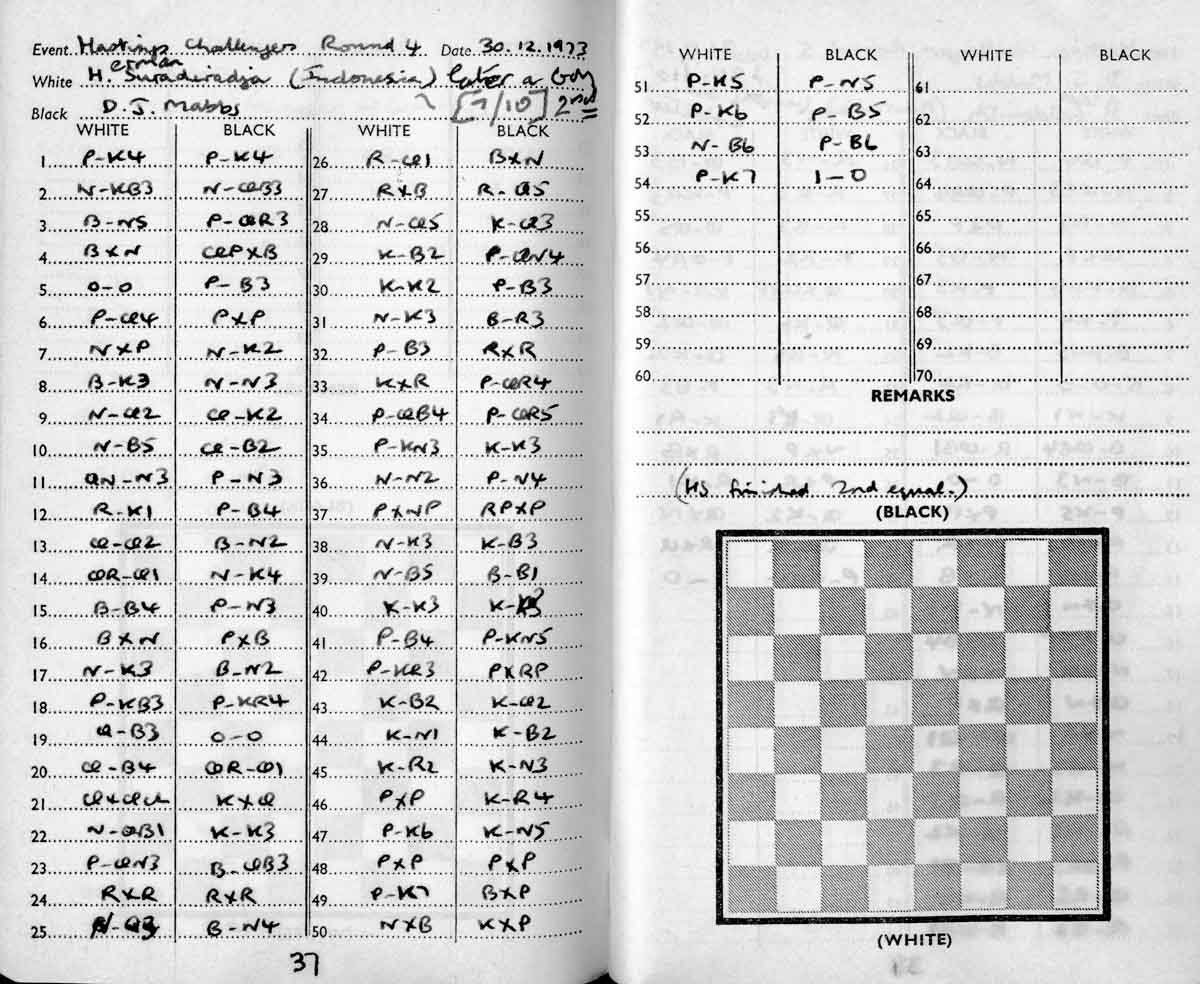 Event Hastings Challengers Round 4 Date 30.12.1973
erman
White H. Suradiradja (Indonesia) later a
Black D. J. Mabbs [7/10] 2nd =
WHITE BLACK WHITE BLACK
1 P-K4 P-K4 26 R-Q1 BXN
2 N-KB3 N-QB3 27 RXB R-Q5
3 B-N5 P-QR3 28 N-Q5 K-Q3
4 BXN QPXB 29 K-B2 P-QN4
5 0-0 P-B3 30 K-K2 P-B3
6 P-Q4 PXP 31 N-K3 B-R3
7 NXP N-K2 32 P-B3 RXR
8 B-K3 N-N3 33 KXR P-QR4
9 N-Q2 Q-K2 34 P-QB4 P-QR5
10 N-B5 Q-B2 35 P-KN3 K-K3
11 QN-N3 P-N3 36 N-N2 P-N4
12 R-K1 P-B4 37 PXNP RPXP
13 Q-Q2 B-N2 38 N-K3 K-B3
14 QR-Q1 N-K4 39 N-B5 B-B1
15 B-B4 P-N3 40 K-K3 K-K3
16 BXN PXB 41 P-B4 P-KN5
17 N-K3 B-N2 42 P-KR3 PXRP
18 P-KB3 P-KR4 43 K-B2 K-Q2
19 Q-B3 0-0 44 K-N1 K-B2
20 Q-B4 QR-Q1 45 K-R2 K-N3
21 QXQch KXQ 46 PXP K-R4
22 N-QB1 K-K3 47 P-K6 K-N5
23 P-QN3 B-QB3 48 PXP PXP
24 RXR RXR 49 P-K7 BXP
25 N-Q3 B-N4 50 NXB KXP
37
WHITE BLACK WHITE BLACK
51 P-K5 P-N5 61
52 P-K6 P-B5 62
53 N-B6 P-B6 63
54 P-K7 1-0 64
55 65
56 66
57 67
58 68
59 69
60 70
REMARKS
(HS finished 2nd equal.)
(BLACK)
(WHITE)